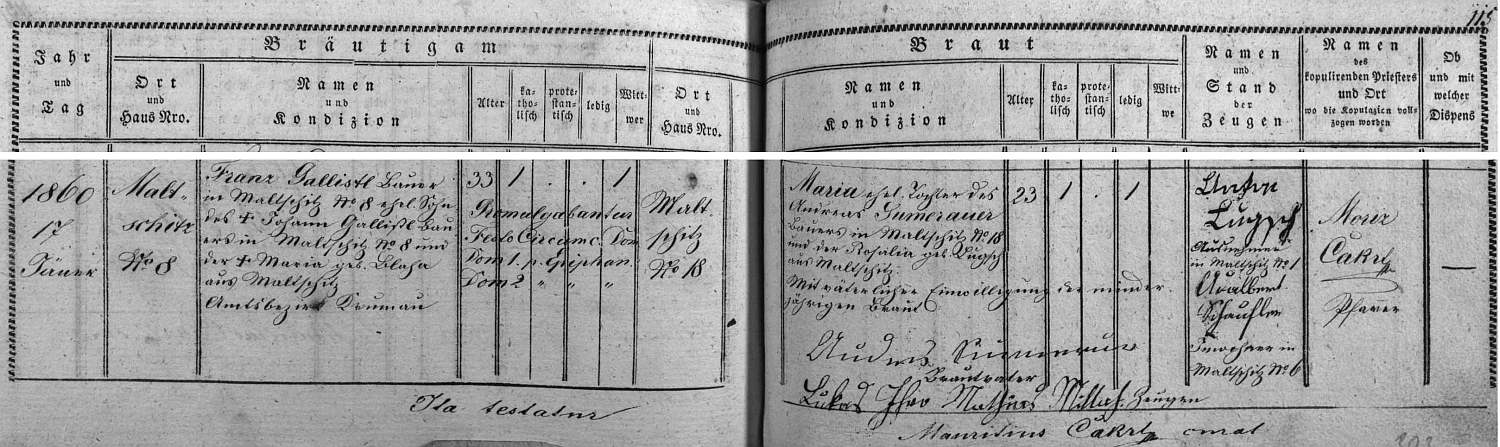 115
Bräutigam
Braut
Jahr
und
Tag
Ort
und
Haus Nro.
Namen
und
Kondizion
Alter
ka-
tho-
lisch
prote-
stan-
tisch
ledig
Witt-
wer
Ort
und
Haus Nro.
Namen
und
Kondizion
Alter
ka-
tho-
lisch
prote-
stan-
tisch
ledig
Witt-
we
Namen
und
Stand
der
Zeugen
Namen
des
kopulirenden Priesters
und Ort
wo die Kopulazion voll-
zogen worden
Ob
und mit
welcher
Dispens
1860
17
Jäner
Malt-
schitz
No 8
Franz Gallistl Bauer
in Maltschitz No 8 ehel. Sohn
des † Johann Gallistl Bau
ers in Maltschitz No 8 und
der † Maria geb. Blaha
aus Maltschitz
Amtsbezirk Krumau
33 1 . . 1
Promulgabantur
Festo Circumc. Dom.
Dom 1. p. Epiphan.
Dom 2 " " "
Malt-
schitz
No 18
Maria ehel. Tochter des
Andreas Sumerauer
Bauers in Maltschitz No 18
und der Rosalia geb. Lugsch
aus Maltschitz.
Mit väterlicher Einwilligung der minder-
jährigen Braut
23 1 . 1
Anton
Lugsch
Ausnehmer
in Maltschitz No 1
Adalbert
Schaufler
Inwohner in
Maltschitz No 6
Moriz
Čakrt
Pfarrer
—
Brautvater
Lukas Mathias Zeugen
Ita testatur
Mauritius Čakrt